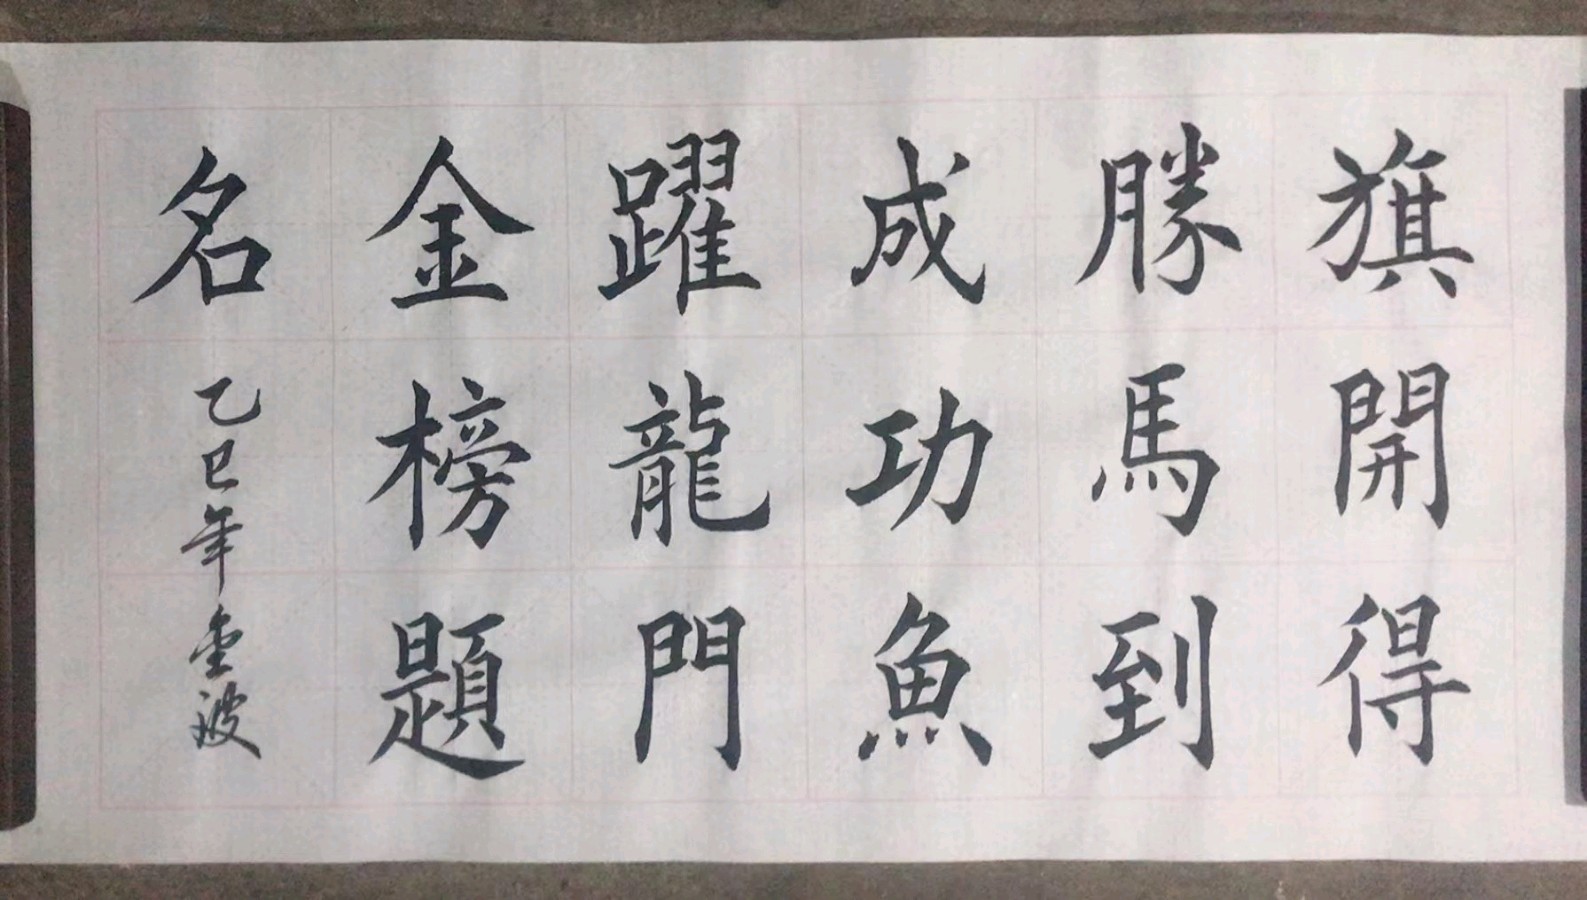 旗開得
勝馬到
成功魚
躍龍門
金榜題
名
乙巳年金波